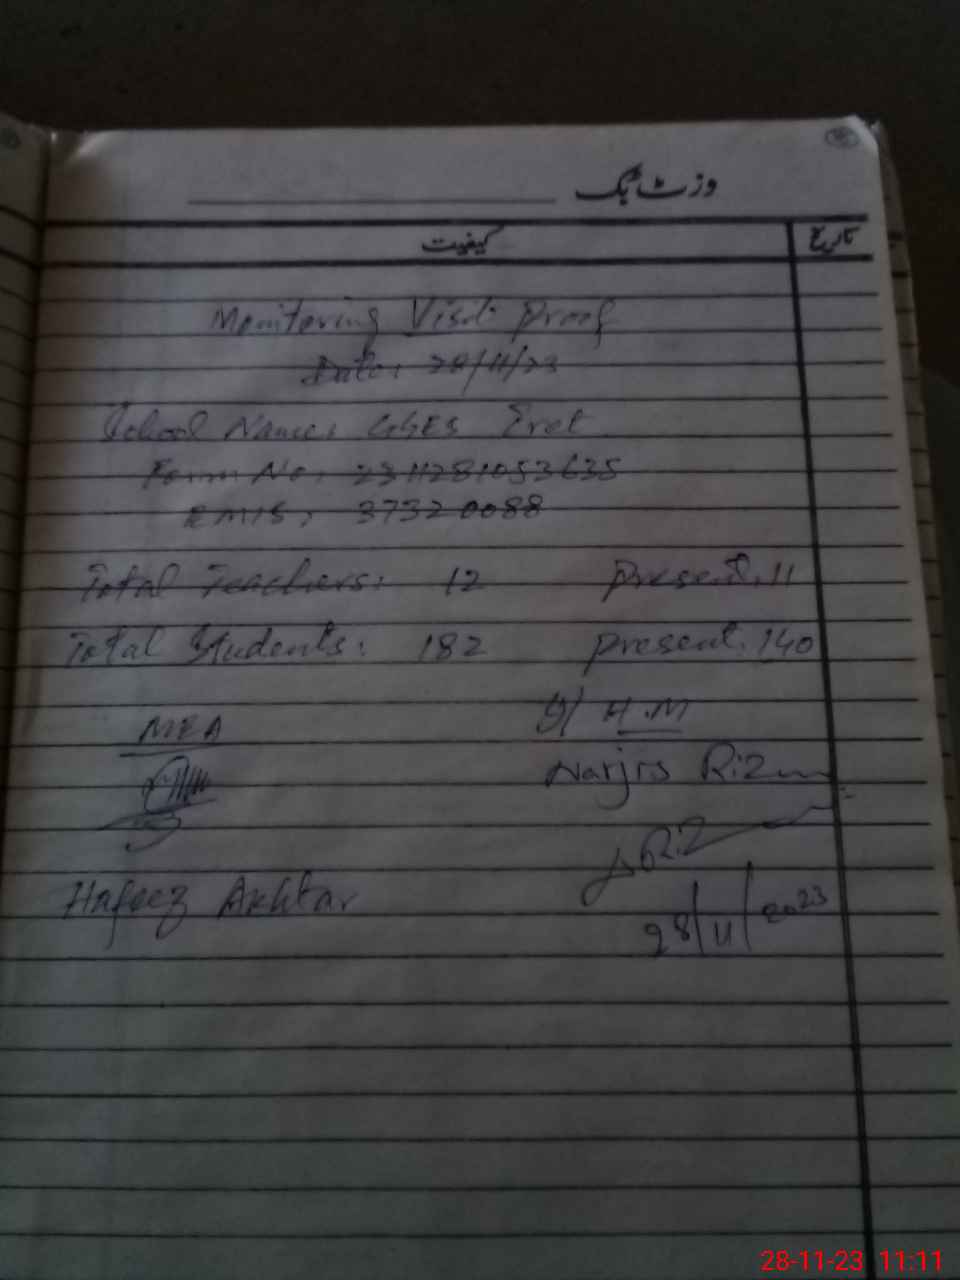 وزٹ بک
کیفیت تاریخ
Monitoring Visit Proof
Date: 28/11/23
School Name: GGES Erot
Form No: 2311281053635
EMIS: 37320088
Total Teachers: 12 Present: 11
Total Students: 182 Present: 140
MEA H.M
Narjis
Hafeez Akhtar
28/11/2023
28-11-23 11:11